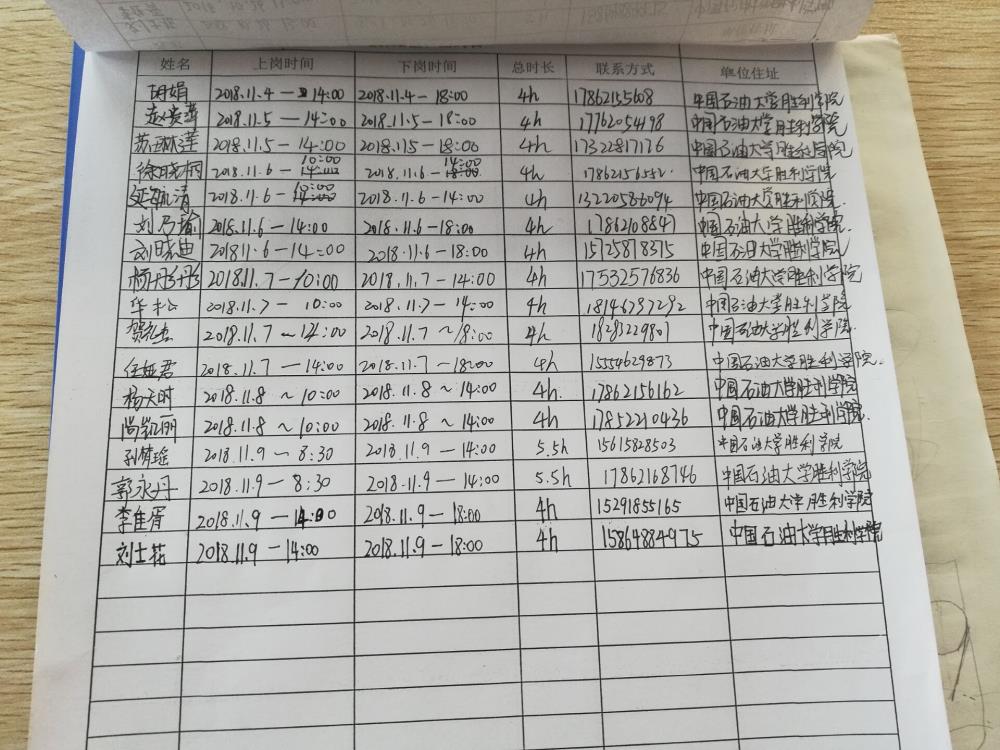 姓名 上岗时间 下岗时间 总时长 联系方式 单位住址
胡娟 2018.11.4—14:00 2018.11.4—18:00 4h 17862155608 中国石油大学胜利学院
2018.11.5—14:00 2018.11.5—18:00 4h 17762054198 中国石油大学胜利学院
苏琳莲 2018.11.5—14:00 2018.115—18:00 4h 17322817176 中国石油大学胜利学院
徐晓桐 2018.11.6—10:00 2018.11.6—14:00 4h 中国石油大学胜利学院
2018.11.6—10:00 2018.11.6—14:00 4h 13220586094 中国石油大学胜利学院
刘乃瑜 2018.11.6—14:00 2018.11.6—18:00 4h 17862108847 中国石油大学胜利学院
刘晓迪 2018.11.6—14:00 2018.11.6—18:00 4h 15725878375 中国石油大学胜利学院
杨丹丹 2018.11.7—10:00 2018.11.7—14:00 4h 17532576836 中国石油大学胜利学院
华松 2018.11.7—10:00 2018.11.7—14:00 4h 中国石油大学胜利学院
2018.11.7～14:00 2018.11.7～18:00 4h 18293229801 中国石油大学胜利学院
任娅君 2018.11.7—14:00 2018.11.7—18:00 4h 15554629873 中国石油大学胜利学院.
杨天时 2018.11.8～10:00 2018.11.8～14:00 4h 17862156162 中国石油大学胜利学院
尚红丽 2018.11.8～10:00 2018.11.8～14:00 4h 17852210436 中国石油大学胜利学院.
孙倩瑶 2018.11.9—8:30 2018.11.9—14:00 5.5h 15615828503 中国石油大学胜利学院
郭永丹 2018.11.9—8:30 2018.11.9—14:00 5.5h 17862168746 中国石油大学胜利学院
李佳胥 2018.11.9—14:00 2018.11.9—18:00 4h 15291855165 中国石油大学胜利学院
刘士花 2018.11.9—14:00 2018.11.9—18:00 4h 15864884975 中国石油大学胜利学院